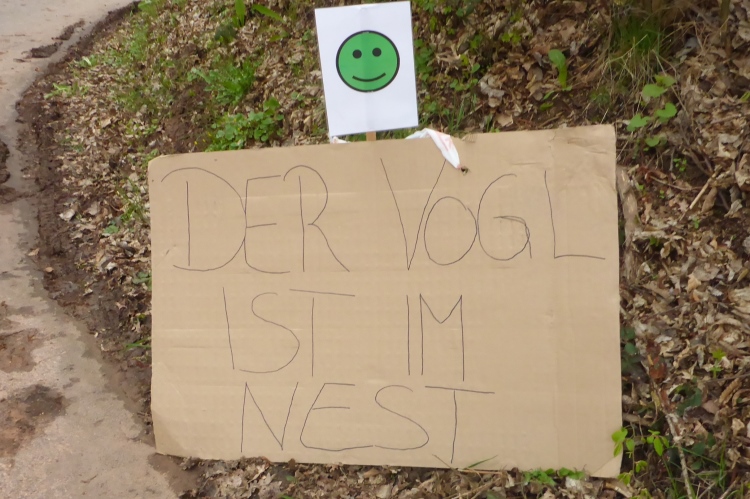 DER VOGL
IST IM
NEST